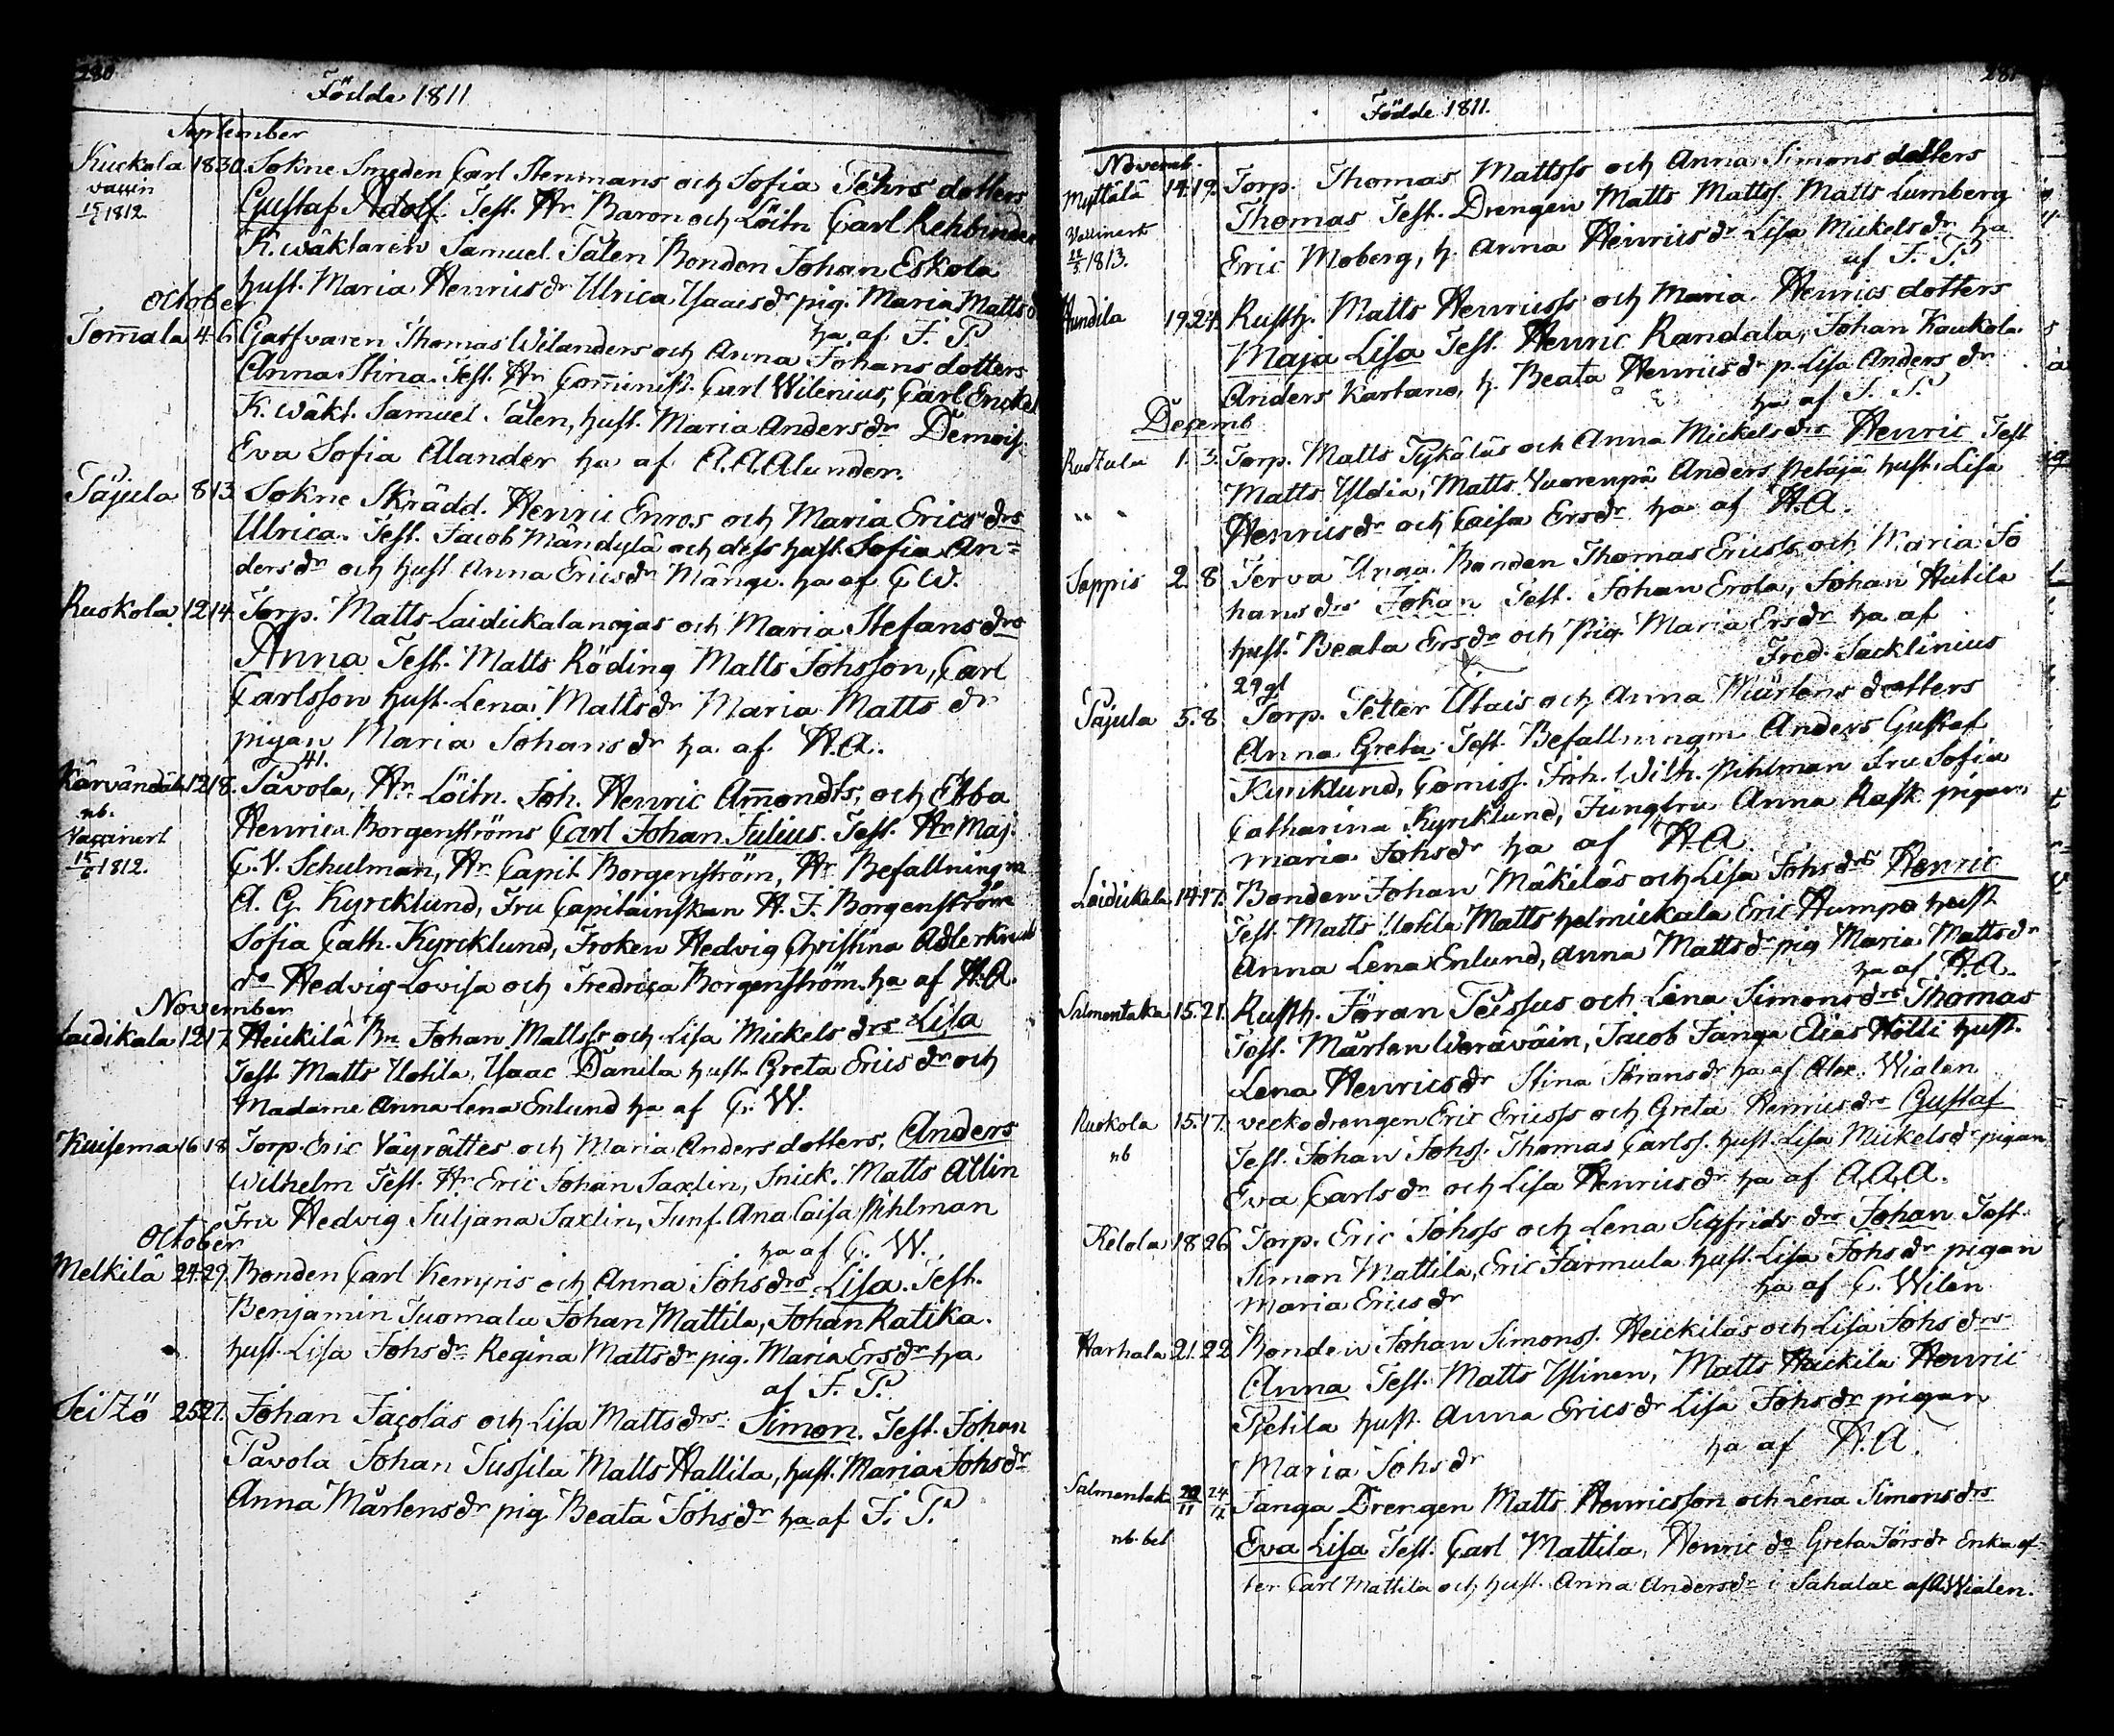 280
Födde 1811
September
Kuckola 18 30. Sokne Smeden Carl Stenmans och Sofia Pehrs dotters
vaccin
15/7 1812
Gustaf Adolf. Test. Hr Baron och Löitn Carl Rehbinder
K. wäktaren Samuel Tålen Bonden Johan Eskola
hust. Maria Henricsdr Ulrica Isaacsdr pig. Maria Mattsd
ha af F. P.
October
Tom̄ala 4 6. Garfvaren Thomas Wilanders och Anna Johans dotters
Anna Stina. Test. Hr Com̄iniss. Carl Wilenius, Carl Enckel
K. wäkt. Samuel Tålen, hust. Maria Andersdr Demois.
Eva Sofia Alander ha af A. A. Alander.
Pajula 8 13. Sokne Skrädd. Henric Enros och Maria Erics drs
Ulrica. Test. Jacob Mändylä och dess hust. Sofia An=
dersdr och hust Anna Ericsdr Mängi. ha af C W.
Ruokola 12 14. Torp. Matts Laidickalanojas och Maria Stefans drs
Anna Test. Matts Röding Matts Johsson, Carl
Carlsson hust. Lena Mattsdr Maria Matts dr
pigan Maria Johansdr ha af H. A.
41.
Kärvändälä 12 18. Pavola, Hr Löitn. Joh. Henric Am̄ondts, och Ebba
nb.
Vaccinert
15/6 1812.
Henrica Borgenströms Carl Johan Julius. Test. Hr Maj.
C. V. Schulman, Hr Capit. Borgenström, Hr Befallningm
A. G. Kyrcklund, Fru Capitainskan H. J. Borgenström
Sofia Cath. Kyrcklund, Froken Hedvig Christina Adlerkreutz
do Hedvig Lovisa och Fredrica Borgenström. ha af H. A.
November
Laidikala 12 17. Heickilä Bn Johan Mattss och Lisa Mickels drs Lisa
Test. Matts Uotila, Isaac Danila hust. Greta Ericsdr och
Madame Anna Lena Enlund ha af C. W.
Kuisema 16 18. Torp. Eric Väyrättes och Maria Anders dotters. Anders
Wilhelm Test. Hr Eric Johan Saxlin, Snick. Matts Allin
Fru Hedvig Juljana Saxlin, Junf. Ana Caisa Pihlman
ha af C. W.
October
Melkilä 24 29. Bonden Carl Kempis och Anna Johsdrs. Lisa. Test.
Benjamin Tuomala Johan Mattila, Johan Ratika.
hust. Lisa Johsdr Regina Mattsdr pig. Maria Ersdr ha
af F. P.
Seizö 25 27. Johan Jacolas och Lisa Mattsdrs. Simon. Test. Johan
Pavola Johan Jussila Matts Hallila, hust. Maria Johsdr
Anna Mårtensdr pig Beata Johsdr ha af F. P.
281
Födde 1811.
Novemb.
Myttälä 14 19. Torp. Thomas Mattss och Anna Simons dotters
Vaccinert
22/5 1813.
Thomas Test. Drengen Matts Mattss. Matts Lumberg
Eric Moberg, h. Anna Henricsdr Lisa Mickelsdr ha
af F. P.
Hundila 19 24. Rusth. Matts Henricss och Maria Henrics dotters
Maja Lisa Test. Henric Randala, Johan Kaukola
Anders Kartano, h. Beata Henricsdr p. Lisa Anders dr
ha af F. P.
Decemb
Rustula 1. 3. Torp. Matts Pykäläs och Anna Mickelsdrs Henric Test
Matts Yldia, Matts Vuorenpä Anders Petäjä hust. Lisa
Henricsdr och Caisa Ersdr ha af H. A.
Sappis 2 8 Jerva Unga Bonden Thomas Ericss och Maria Jo
hans drs Johan Test. Johan Erola, Johan Hutila
hust. Beata Ersdr och Pig. Maria Ersdr ha af
Fred. Jacklinius
29 gl
Pajula 5. 8. Torp. Petter Utais och Anna Mårtens dotters
Anna Greta Test. Befallningm. Anders Gustaf
Kyrcklund, Comiss. Joh. Wilh. Pihlman Fru Sofia
Catharina Kyrcklund, Jungfru Anna Rask pigan
Maria Johsdr ha af H. A.
Laidickala 14 17. Bonden Johan Mäkiläs och Lisa Johsdrs Henric
Test. Matts Uotila Matts helmickala Eric Humpo hust
Anna Lena Enlund, Anna Mattsdr pig Maria Mattsdr
ha af H. A.
Salmentaka 15. 21. Rusth. Jöran Peissus och Lena Simonsdrs Thomas
Test. Mårten Woräväin, Jacob Janga Elias Hölli hust.
Lena Henricsdr Stina Jöransdr ha af Alex. Wialen
Ruokola 15. 17. veckodrengen Eric Ericss och Greta Henricsdrs Gustaf
nb
Test. Johan Johss. Thomas Carlss. hust. Lisa Mickelsdr pigan
Eva Carlsdr och Lisa Henricsdr ha af A. A. A.
Kelola 18 26. Torp. Eric Johss och Lena Sigfrids drs Johan Test.
Simon Mattila, Eric Jarmula hust. Lisa Johsdr pigan
Maria Ericsdr ha af C. Wilen
Harhala 21. 22 Bonden Johan Simonss. Heickiläs och Lisa Johs drs
Anna Test. Matts Ylinen, Matts Heickilä Henric
Pietila hust. Anna Ericsdr Lisa Johsdr pigan
Maria Johsdr ha af H. A.
Salmentak 20/11 24/12 Janga Drengen Matts Henricsson och Lena Simonsdrs
nb. bet
Eva Lisa Test. Carl Mattila, Henric do Greta Jörsdr Enka ef
ter Carl Mattila och hust. Anna Andersdr i Sahalax af A Wialen.